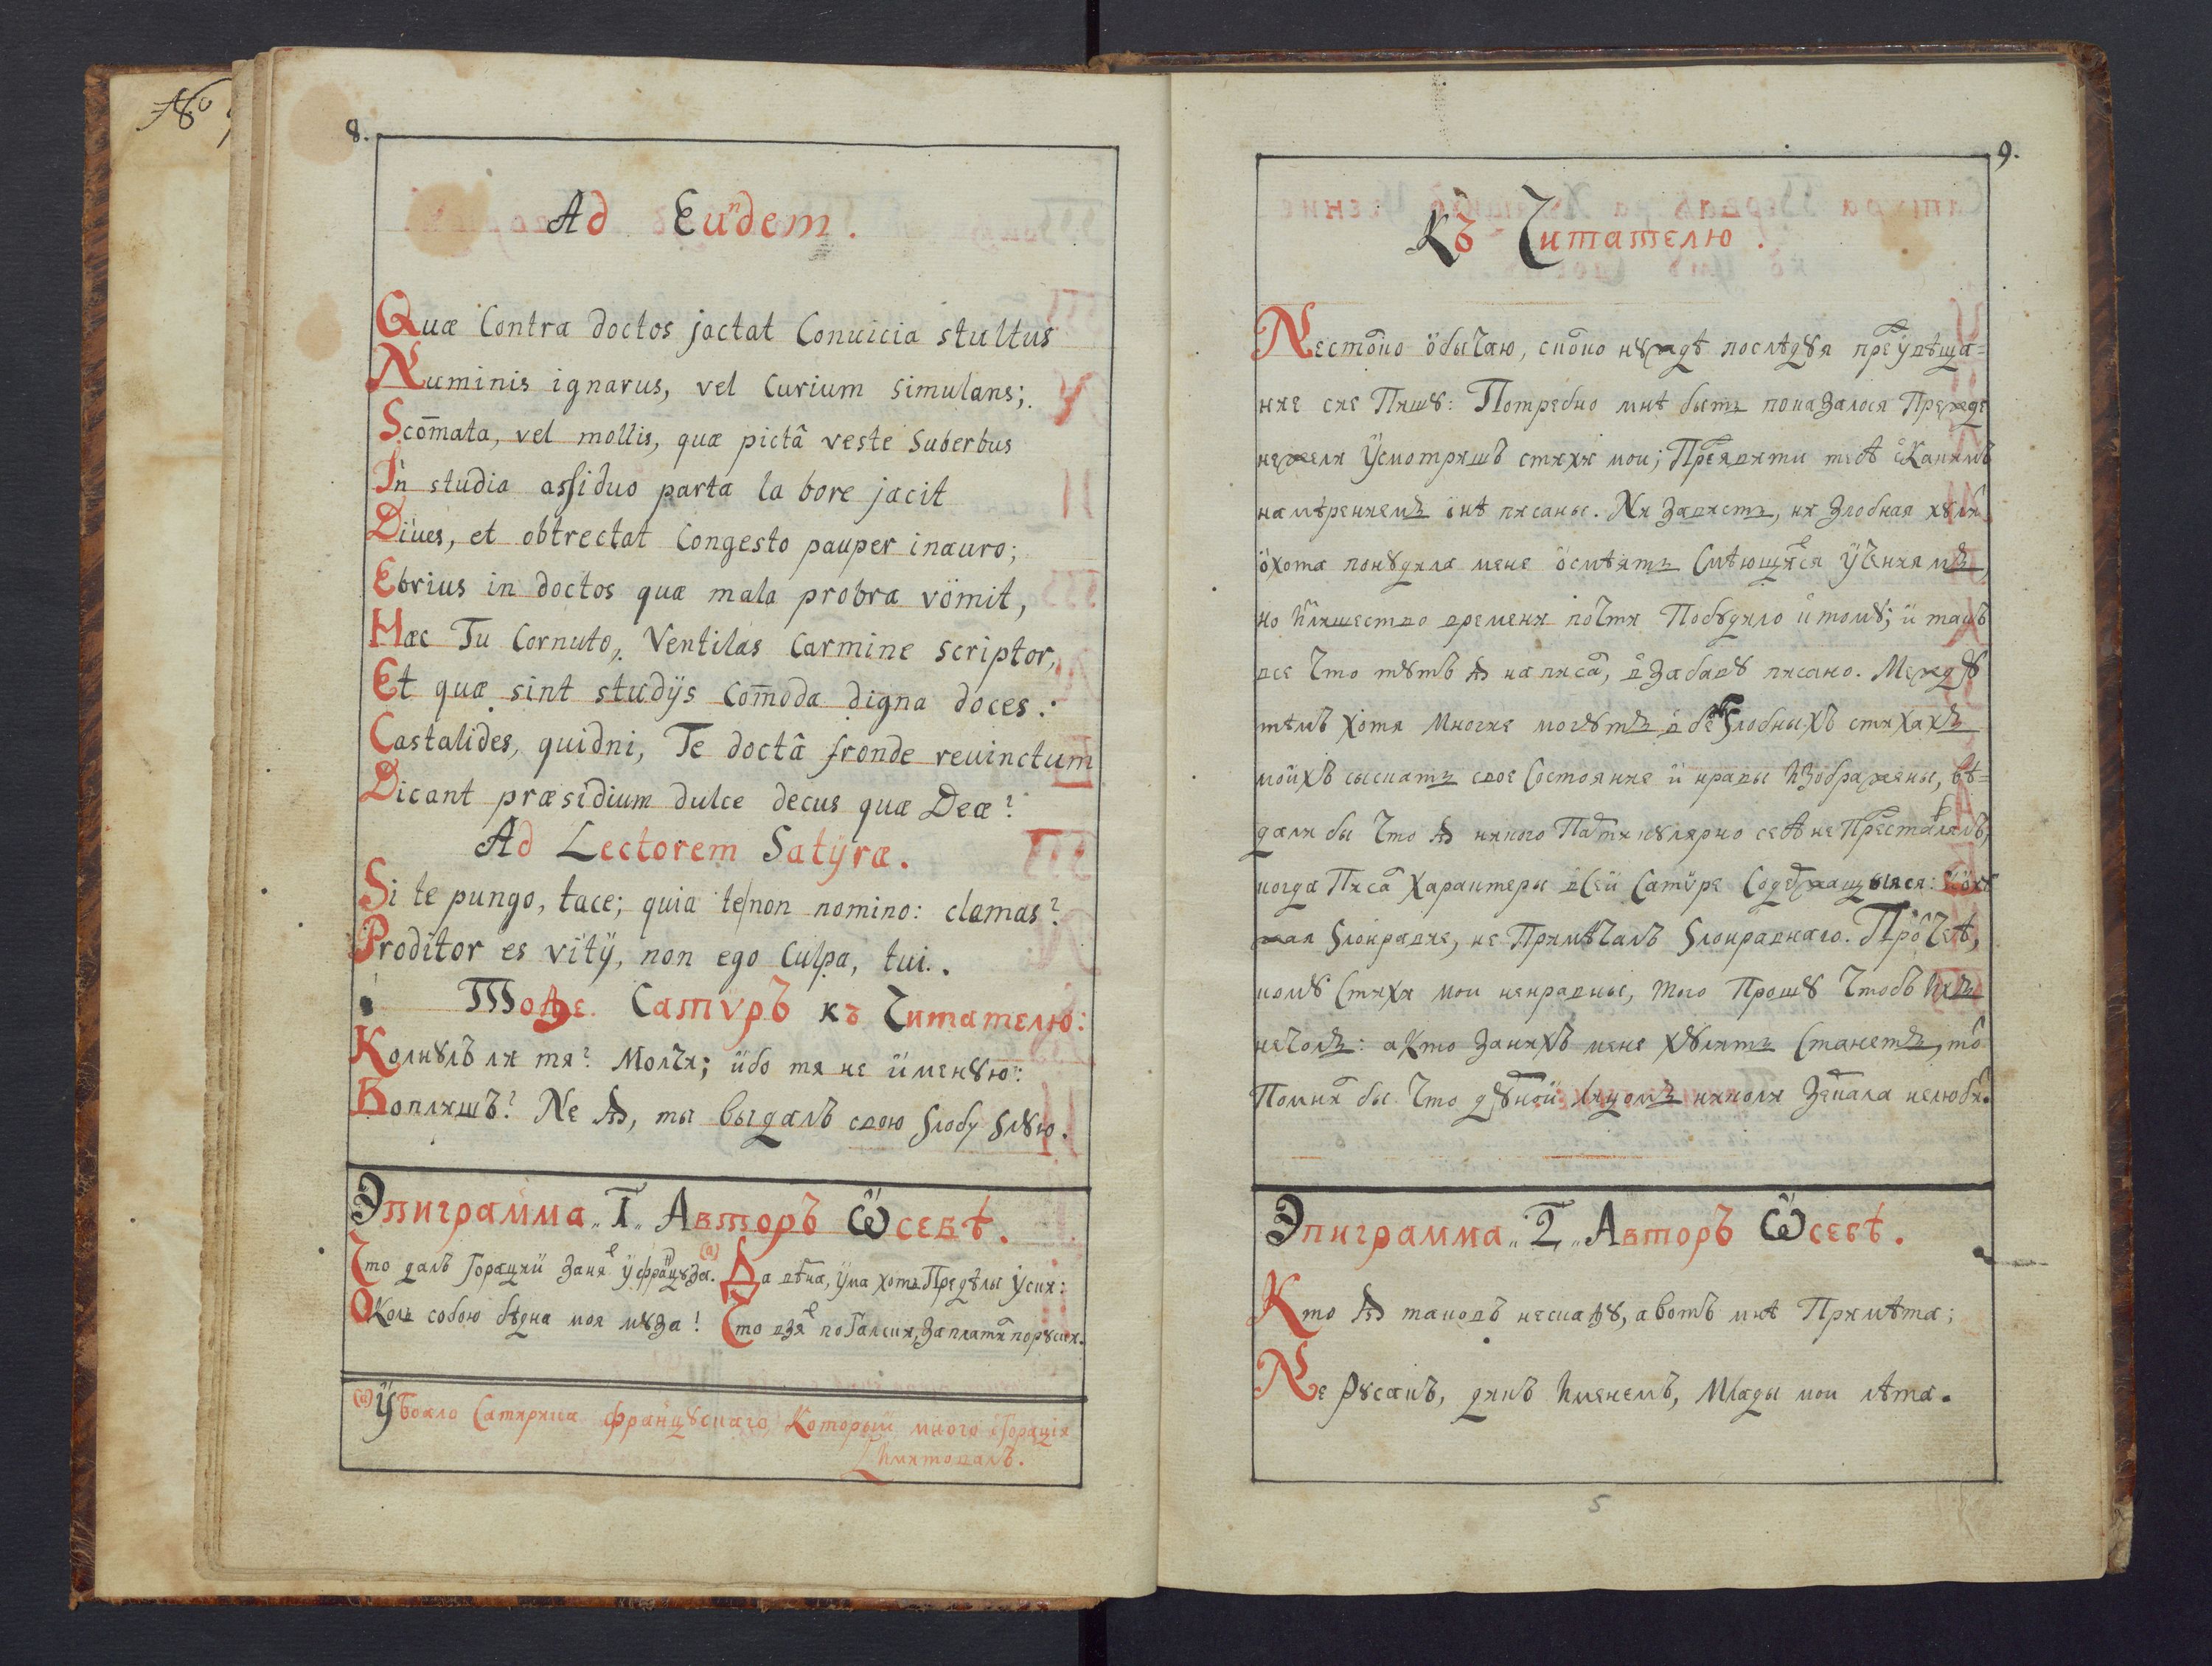 No
8.
Ad Eundem.
Quæ Contra doctos jactat Conuicia stultus
Numinis ignarus, vel Curium simulans;
Scom̄ata, vel mollis, quæ pictâ veste Suberbus
In studia assiduo parta la bore jacit
Diues, et obtrectat Congesto pauper inauro;
Ebrius in doctos quæ mala probra vomit,
Hæc Tu Cornuto, Ventilas Carmine scriptor,
Et quæ sint studijs Com̄oda digna doces.
Castalides, quidni, Te doctâ fronde reuinctum
Dicant præsidium dulce decus quæ Deæ?
Ad Lectorem Satyræ.
Si te pungo, tace; quia te non nomino: clamas?
Proditor es vitij, non ego Culpa, tui.
Тояже Сатѵръ къ Читателю:
Колнꙋлъ ли тя? Молчи; ибо тя не именꙋю:
Вопишъ? Не Ꙗ, ты выдалъ свою ѕлобу ѕлꙋю.
Эпиграмма „I„ Авторъ Ѡ себѣ.
Что далъ Горацій заня у францꙋза. (а) Да вѣна, ума хоть Предѣлы Уски:
О Коль собою бѣдна моя мꙋза! Что взя по Галски, заплати порꙋски.
(а) У Боало Сатирика францꙋскаго Который много Горація
Имитовалъ.
9.
Къ Читателю.
Не столко обычаю, сколко нꙋждѣ послѣдꙋя предувѣща=
ние сие Пишꙋ: Потребно мнѣ быть показалося Прежде
нежели Усмотришъ стихи мои; Предявити тебѣ с Какимъ
намѣрениемъ онѣ писаны. Ни Зависть, ни Злобная хꙋли
охота понꙋдила мене осмѣять Смѣющихся Учениямъ,
но Излишество времени почти Побꙋдило к томꙋ; и такъ
все Что тꙋтъ Ꙗ написа, в забавꙋ писано. Междꙋ
тѣмъ Хотя Многие могꙋтъ в безѕлобныхъ стихахъ
моихъ сыскать свое Состояние и нравы Изображены, вѣ=
дали бы Что Ꙗ никого Партикꙋлярно себѣ не Представлялъ,
когда Писа Характеры в Сей Сатѵре Содержащыяся:
жая ѕлонравие, не Примѣчалъ ѕлонравнаго. Протчѣ,
комꙋ Стихи мои ненравные, того Прошꙋ Чтобъ Ихъ
нечолъ: а Кто занихъ мене хꙋлить Станетъ, то
Помни бы Что дꙋрной лицомъ николи Зеркала нелюби.
Эпиграмма „2„ Авторъ Ѡ себѣ.
Кто Ꙗ таковъ нескажꙋ, а вотъ мнѣ Примѣта;
Не Рꙋсакъ, дикъ Именемъ, Млады мои лѣта.
5